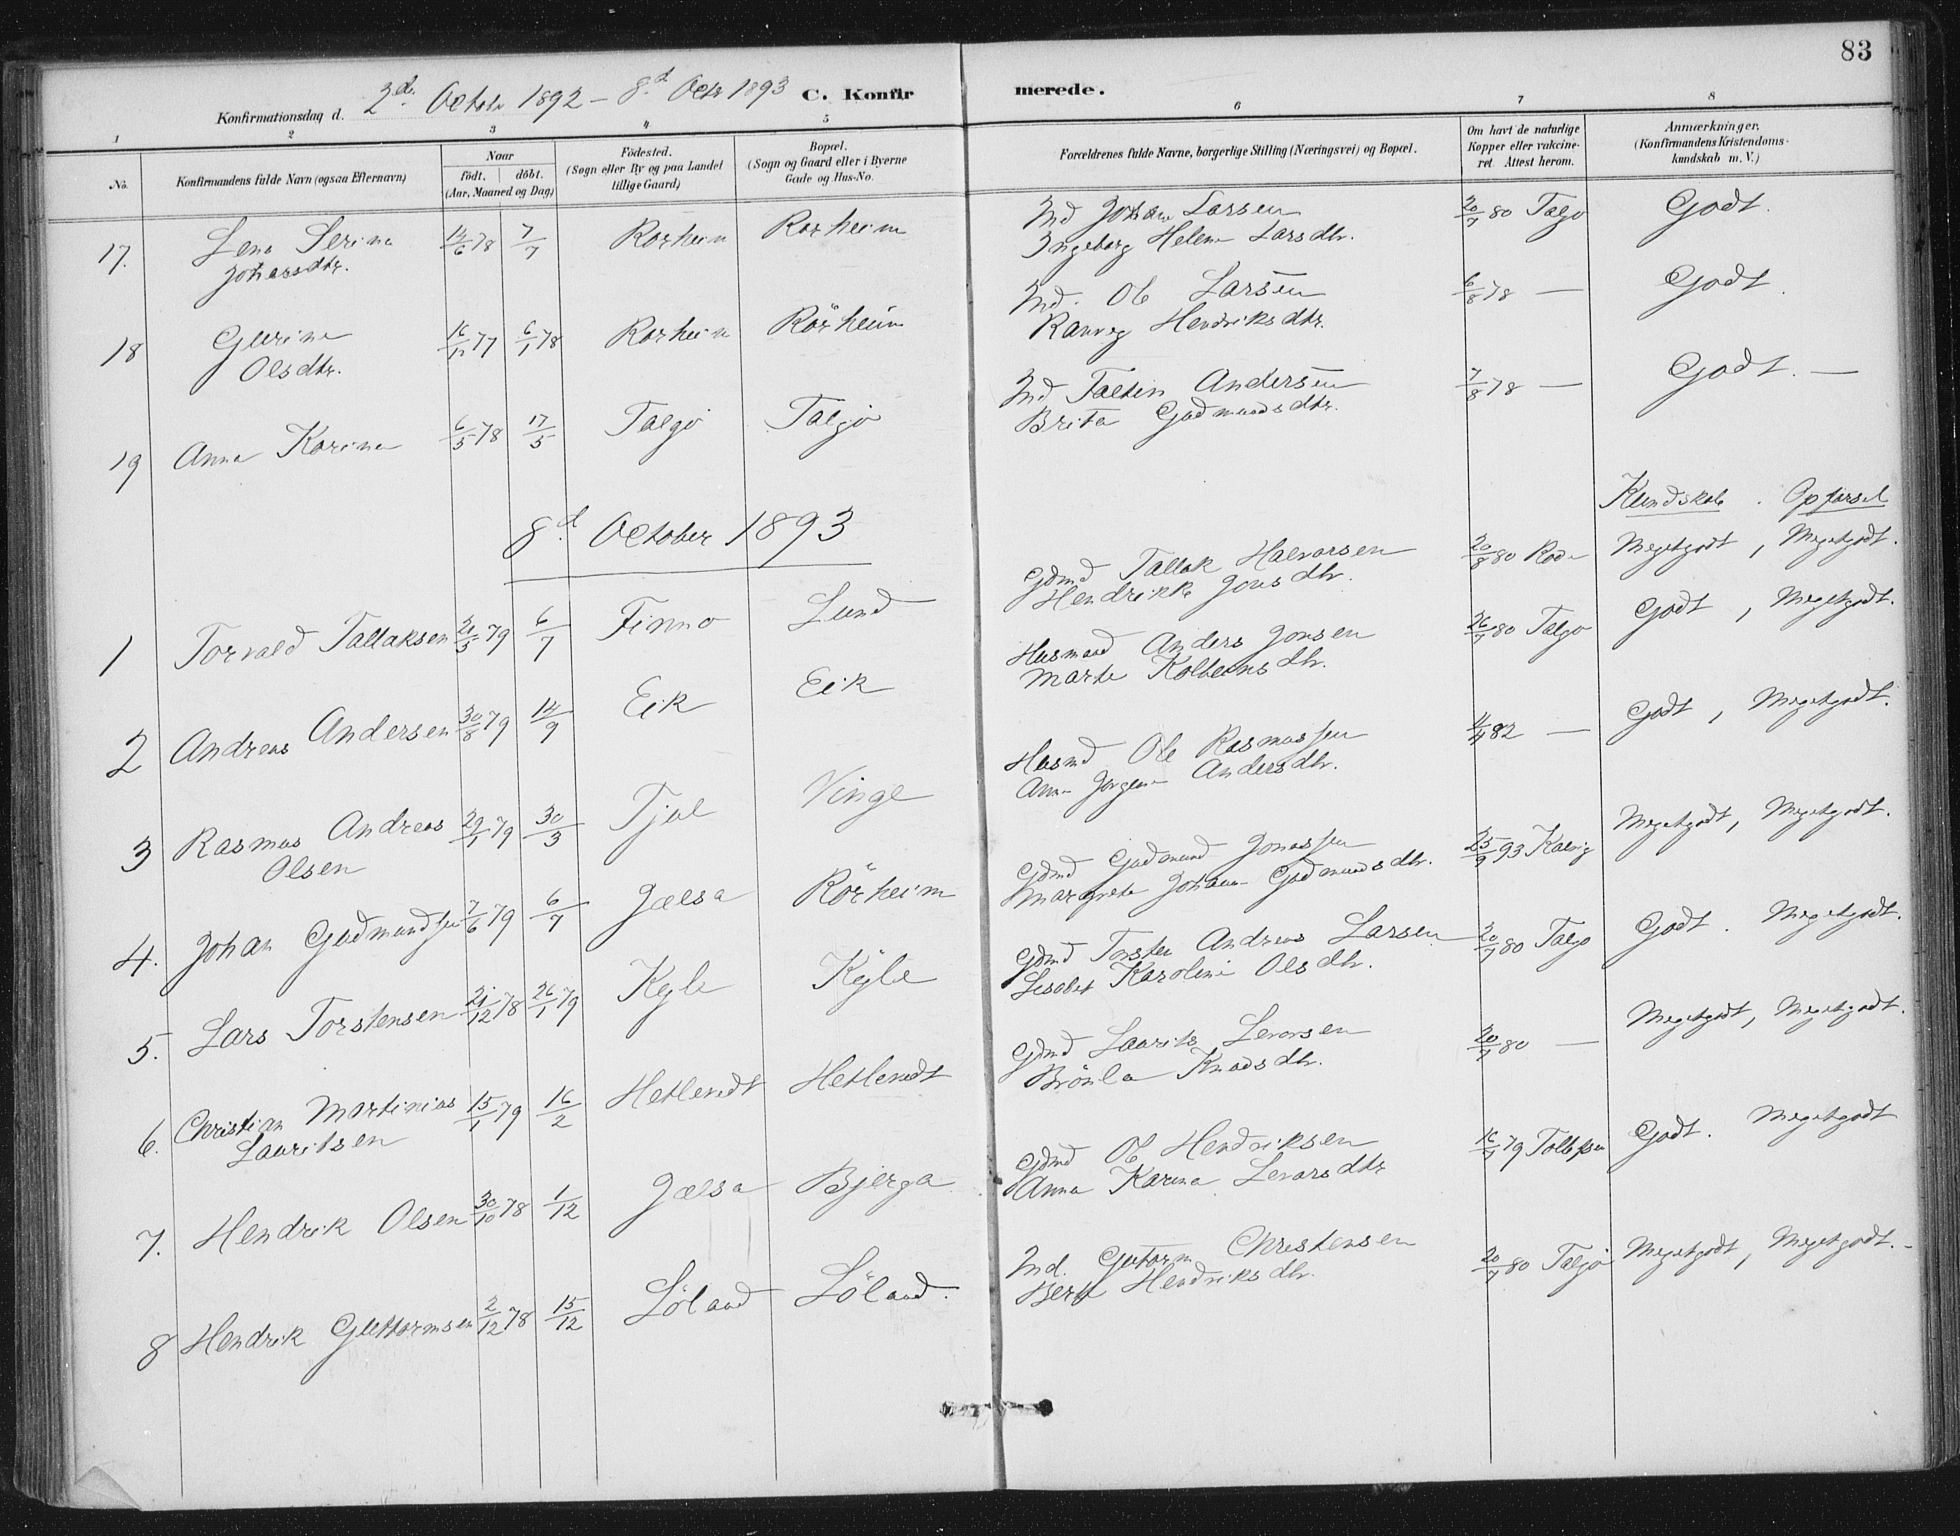 83
Konfirmationsdag d. 2d. Octobr 1892 – 8d Octr 1893 C. Konfirmerede.
1 2 3 4 5 6 7 8
No.
Konfirmandens fulde Navn (ogsaa Efternavn)
Naar
født. døbt.
(Aar, Maaned og Dag)
Fødested.
(Sogn eller By og paa Landet
tillige Gaard)
Bopæl.
(Sogn og Gaard eller i Byerne
Gade og Hus-No.
Forældrenes fulde Navne, borgerlige Stilling (Næringsvei) og Bopæl.
Om havt de naturlige
Kopper eller vakcine-
ret. Attest herom.
Anmærkninger.
(Konfirmandens Kristendoms-
kundskab m. V.)
17. Lena Serina 14/6 78 7/7 Rorheim Rorheim Ind Johan Larsen 20/7 80 Talgo Godt.
Johansdtr. Ingeborg Helene Larsdtr.
18 Gurine 16/11 77 6/1 78 Rorheim Rorheim Ind. Ole Larsen 6/8 78 — Godt.
Olsdtr. Ranveg Hendriksdtr.
19 Anna Karina 6/5 78 17/5 Talgo Talgo Ind Andersen 7/8 78 — Godt. —
Brita Gudmundsdtr.
8d. October 1893
Kundskab . Opførsel
1 Torvald Tallaksen 21/5 79 6/7 Finno Lund Gdmd Tallak Halvorsen 20/8 80 Meget godt, Meget godt.
Hendrikke Jonsdtr.
2 Andreas Andersen 30/8 79 14/9 Eik Eik Husmand Anders Jonsen 26/7 80 Talgo Godt, Meget godt.
Marte Kolbensdtr.
3 Rasmus Andreas 29/1 79 30/3 Tjul Vinge Husmd Ole Rasmussen 4/4 82 — Godt, Meget godt.
Olsen Anna Jorgine Andersdtr.
4. Johan Gudmundsen 7/6 79 6/7 Jælsa Rörheim Gdmd Gudmund Jonassen 25/9 93 Meget godt, Meget godt.
Margrete Johanne Gudmundsdtr.
5. Lars Torstensen 21/12 78 26/1 79 Kyle Kyle Gdmd Torsten Andreas Larsen 20/7 80 Talgo Godt. Meget godt.
Lisabet Karoline Olsdtr.
6. Christian Martinius 15/1 79 16/2 Hetlendt Hetlendt Gdmd Laurits Levorsen 20/7 80 — Meget godt, Meget godt.
Lauritsen Brönla Knudsdtr.
7. Hendrik Olsen 30/10 78 1/12 Jælsa Bjerga Gdmd Ole Hendriksen 16/7 79 Godt. Meget godt
Anna Karina Levorsdtr
8 Hendrik Guttormsen 2/12 78 15/12 Löland Löland. Ind. Gutorm Christensen 20/7 80 Talgo Meget godt, Meget godt. –
Berta Hendriksdtr.